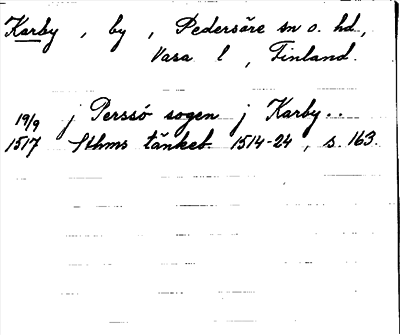 Karby , by , Pedersöre sn o. hd.,
Vasa l , Finland.
19/9 j Perssö sogen j Karby..
1517 Sthms tänkeb. 1514-24, s. 163.